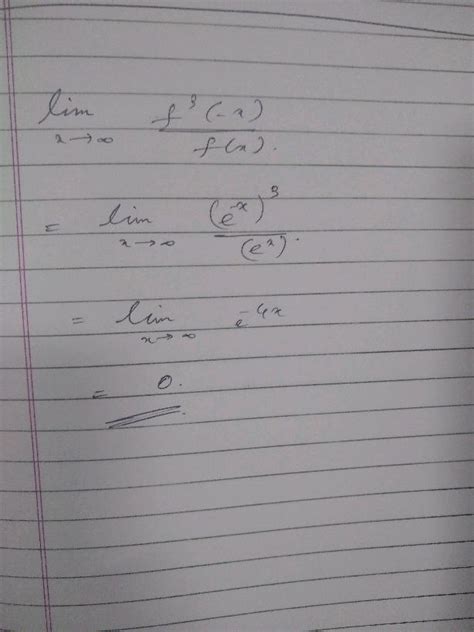 lim x→∞ f³(-x) / f(x).
= lim x→∞ (e^-x)³ / (e^x).
= lim x→∞ e^-4x
= 0.